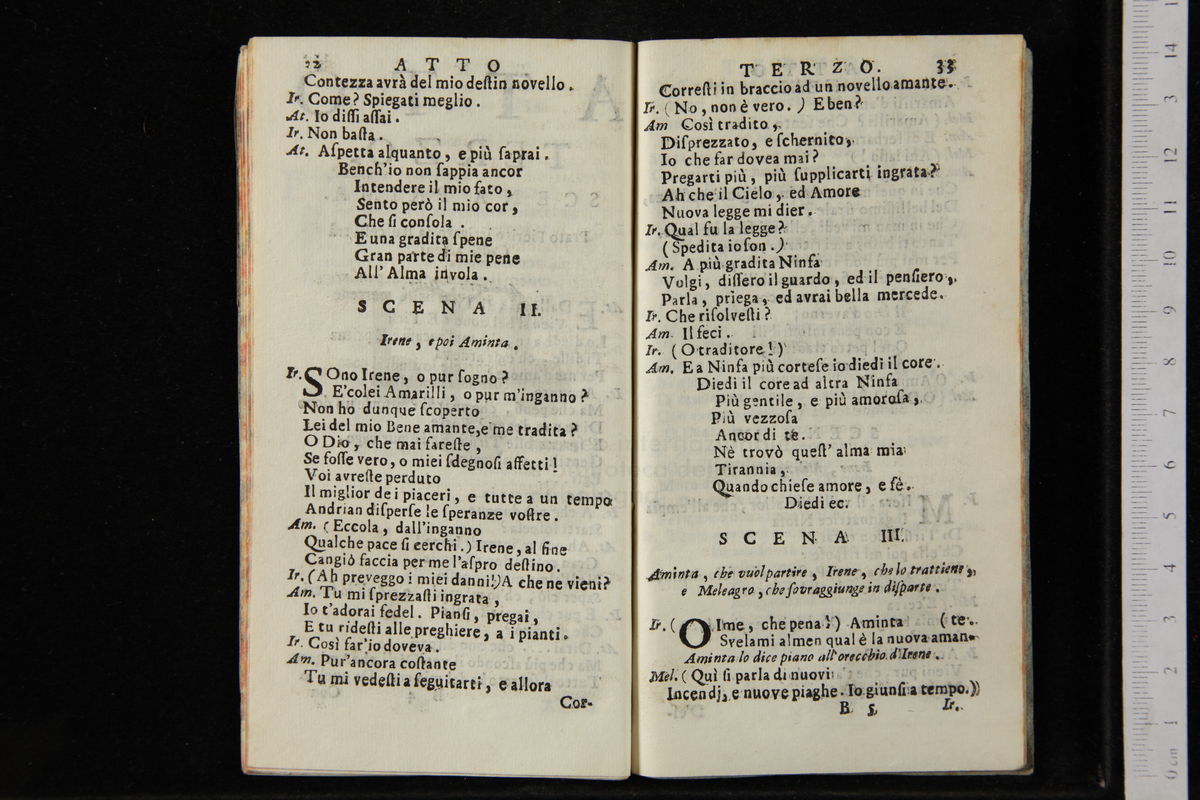 32 ATTO
Contezza avrà del mio deſtin novello.
Ir. Come? Spiegati meglio.
At. Io diſſi aſſai.
Ir. Non baſta.
At. Aſpetta alquanto, e più ſaprai.
Bench'io non ſappia ancor
Intendere il mio fato,
Sento però il mio cor,
Che ſi conſola.
E una gradita ſpene
Gran parte di mie pene
All' Alma invola.
SCENA II.
Irene, e poi Aminta.
Ir. SOno Irene, o pur ſogno?
E' colei Amarilli, o pur m'inganno?
Non ho dunque ſcoperto
Lei del mio Bene amante, e me tradita?
O Dio, che mai fareſte,
Se foſſe vero, o miei ſdegnoſi affetti!
Voi avreſte perduto
Il miglior de i piaceri, e tutte a un tempo
Andrian diſperſe le ſperanze voſtre.
Am. (Eccola, dall'inganno
Qualche pace ſi cerchi.) Irene, al fine
Cangiò faccia per me l'aſpro deſtino.
Ir. (Ah preveggo i miei danni!) A che ne vieni?
Am. Tu mi ſprezzaſti ingrata,
Io t'adorai fedel. Pianſi, pregai,
E tu rideſti alle preghiere, a i pianti.
Ir. Così far'io doveva.
Am. Pur'ancora coſtante
Tu mi vedeſti a ſeguitarti, e allora
Cor-
TERZO. 33
Correſti in braccio ad un novello amante.
Ir. (No, non è vero.) E ben?
Am Così tradito,
Diſprezzato, e ſchernito,
Io che far dovea mai?
Pregarti più, più ſupplicarti ingrata?
Ah che il Cielo, ed Amore
Nuova legge mi dier.
Ir. Qual fu la legge?
(Spedita io ſon.)
Am. A più gradita Ninfa
Volgi, diſſero il guardo, ed il penſiero,
Parla, priega, ed avrai bella mercede.
Ir. Che riſolveſti?
Am. Il feci.
Ir. (O traditore!)
Am. E a Ninfa più corteſe io diedi il core.
Diedi il core ad altra Ninfa
Più gentile, e più amoroſa,
Più vezzoſa
Ancor di te.
Nè trovò queſt' alma mia
Tirannia,
Quando chieſe amore, e fè.
Diedi ec.
SCENA III.
Aminta, che vuol partire, Irene, che lo trattiene,
e Meleagro, che ſovraggiunge in diſparte.
Ir. (OIme, che pena!) Aminta (te.
Svelami almen qual è la nuova aman-
Aminta lo dice piano all'orecchio d'Irene.
Mel. (Quì ſi parla di nuovi
Incendj, e nuove piaghe. Io giunſi a tempo.)
B 5 Ir.